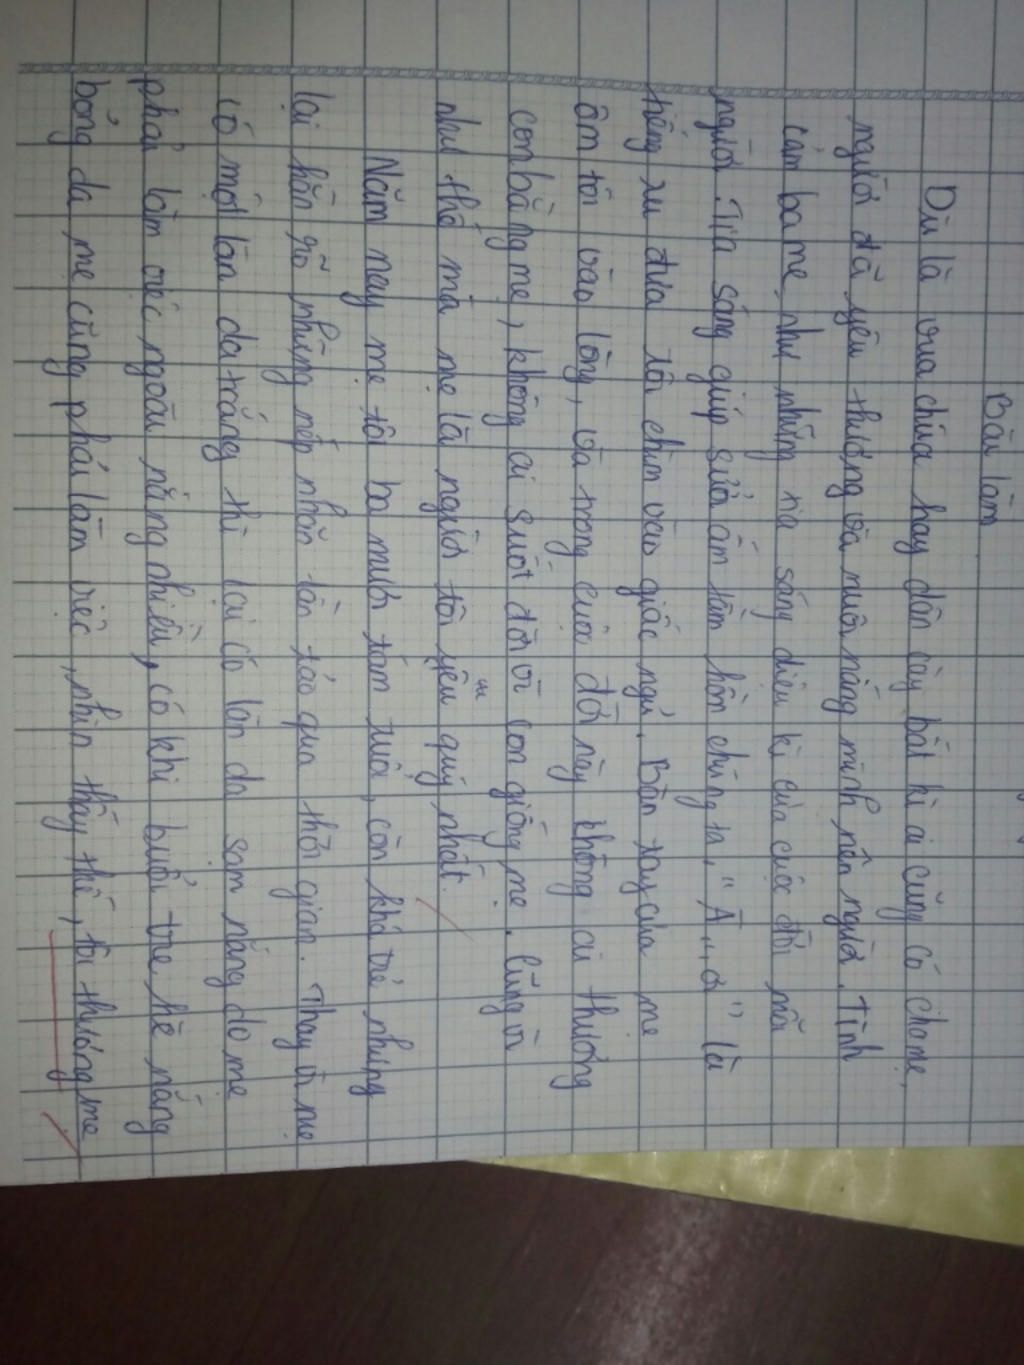 Bài làm
Dù là vua chúa hay dân cày bất kì ai cũng có cha mẹ,
người đã yêu thương và nuôi nấng mình nên người. Tình
cảm ba mẹ, như những tia sáng diệu kì của cuộc đời mỗi
người. Tia sáng giúp sưởi ấm tâm hồn chúng ta, "À,, ơi" là
tiếng ru đưa tôi chìm vào giấc ngủ. Bàn tay của mẹ
ôm tôi vào lòng, và trong cuộc đời này không ai thương
con bằng mẹ, không ai suốt đời vì con giống mẹ. Cũng vì
như thế mà mẹ là người tôi yêu quý nhất.
Năm nay mẹ tôi ba mươi tám tuổi, còn khá trẻ nhưng
lại hằn rõ những nếp nhăn tần tảo qua thời gian. Thay vì mẹ
có một làn da trắng thì lại có làn da sạm nắng do mẹ
phải làm việc ngoài nắng nhiều, có khi buổi trưa hè nắng
bỏng da mẹ cũng phải làm việc, nhìn thấy thế, tôi thương mẹ